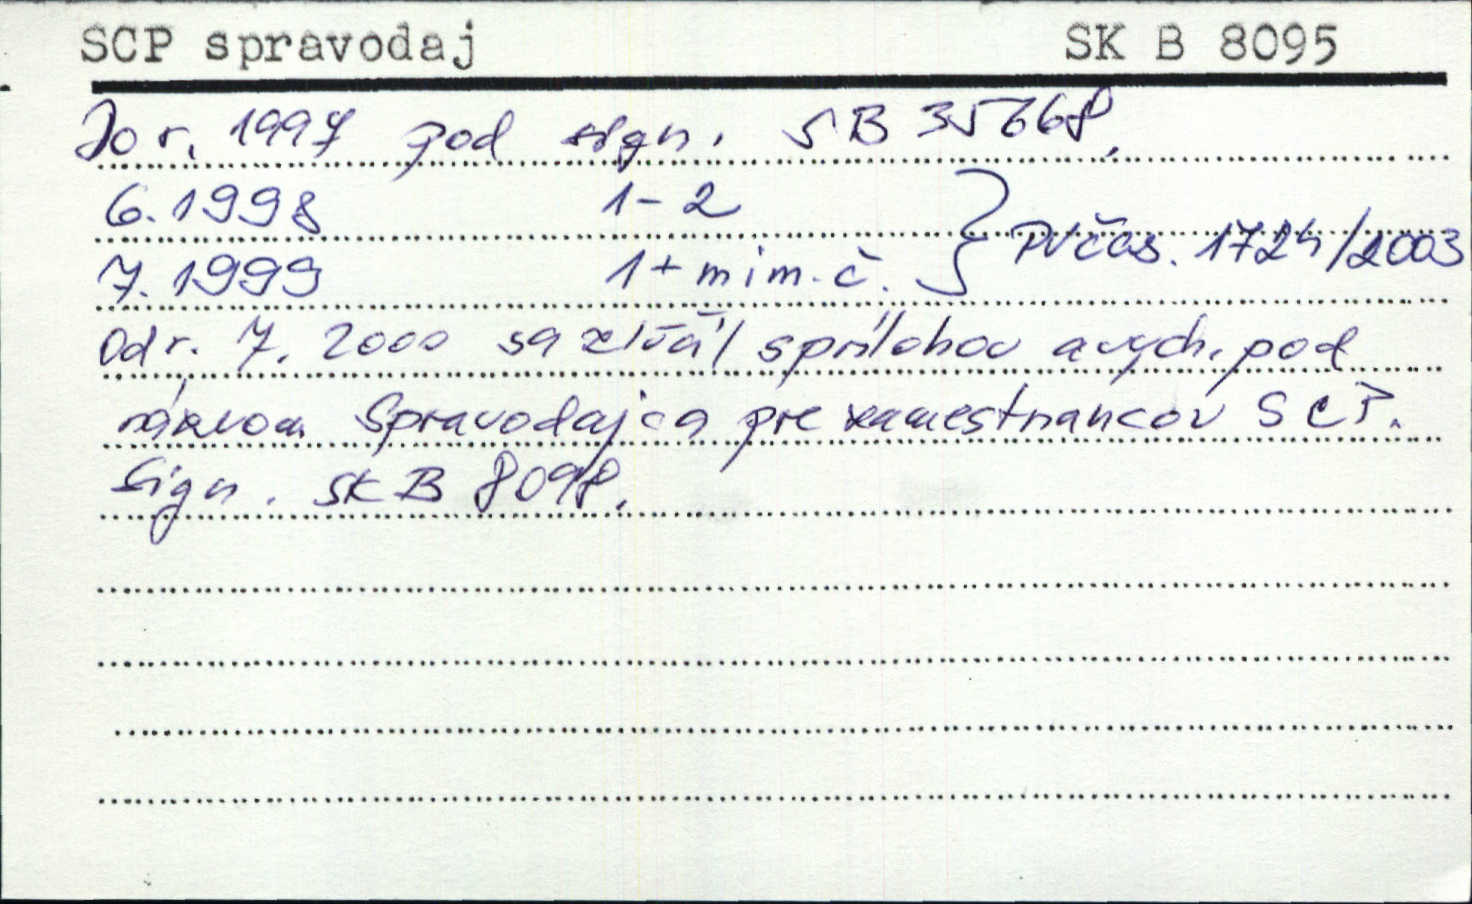 SCP spravodaj SK B 8095
Do r. 1997 pod sign. SB 35668.
6.1998 1-2
7.1999 1 + mim. č. } PVčas. 1724/2003
Od r. 7. 2000 sa zlúčil s prílohou a vych. pod
názvom Spravodajca pre zamestnancov SCP.
Sign. SK B 8098.